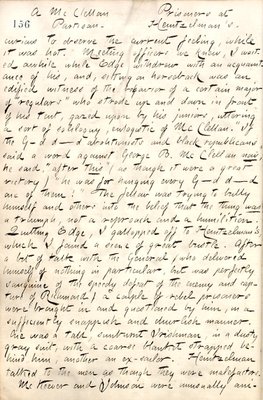 156
A McClellan
Partisan.
Prisoners at
Heintzelman's.
curious to observe the current feeling, while
it was hot. Meeting officers we knew, I wait-
ed awhile while Edge withdrew with an acquaint-
ance of his, and, sitting on horseback was an
edified witness of the behavior of a certain major
of "regulars" who strode up and down in front
of his tent, gazed upon by his juniors, uttering
a sort of soliloquy, eulogistic of McClellan. "If
the G-d d-d abolitionists and black republicans
said a word against George B. McClellan now,"
he said, "after this (as though it were a great
victory) "he was for hanging every G-d d-d
one of them." The fellow was trying to bully
himself and others into the belief that the thing was
a triumph, not a reproach and a humiliation.
Quitting Edge, I galloped off to Heintzelman's,
which I found a scene of great bustle. After
a bit of talk with the General (who delivered
himself of nothing in particular, but was perfectly
sanguine of the speedy defeat of the enemy and cap-
ture of Richmond) a couple of rebel prisoners
were brought in and questioned by him, in a
sufficiently snappish and churlish manner.
One was a tall, sunburnt Irishman, in a dusty
gray suit, with a coarse blanket strapped be-
hind him, another an ex-sailor. Heintzelman
talked to the men as though they were malefactors.
McKeever and Johnson were unusually ami-